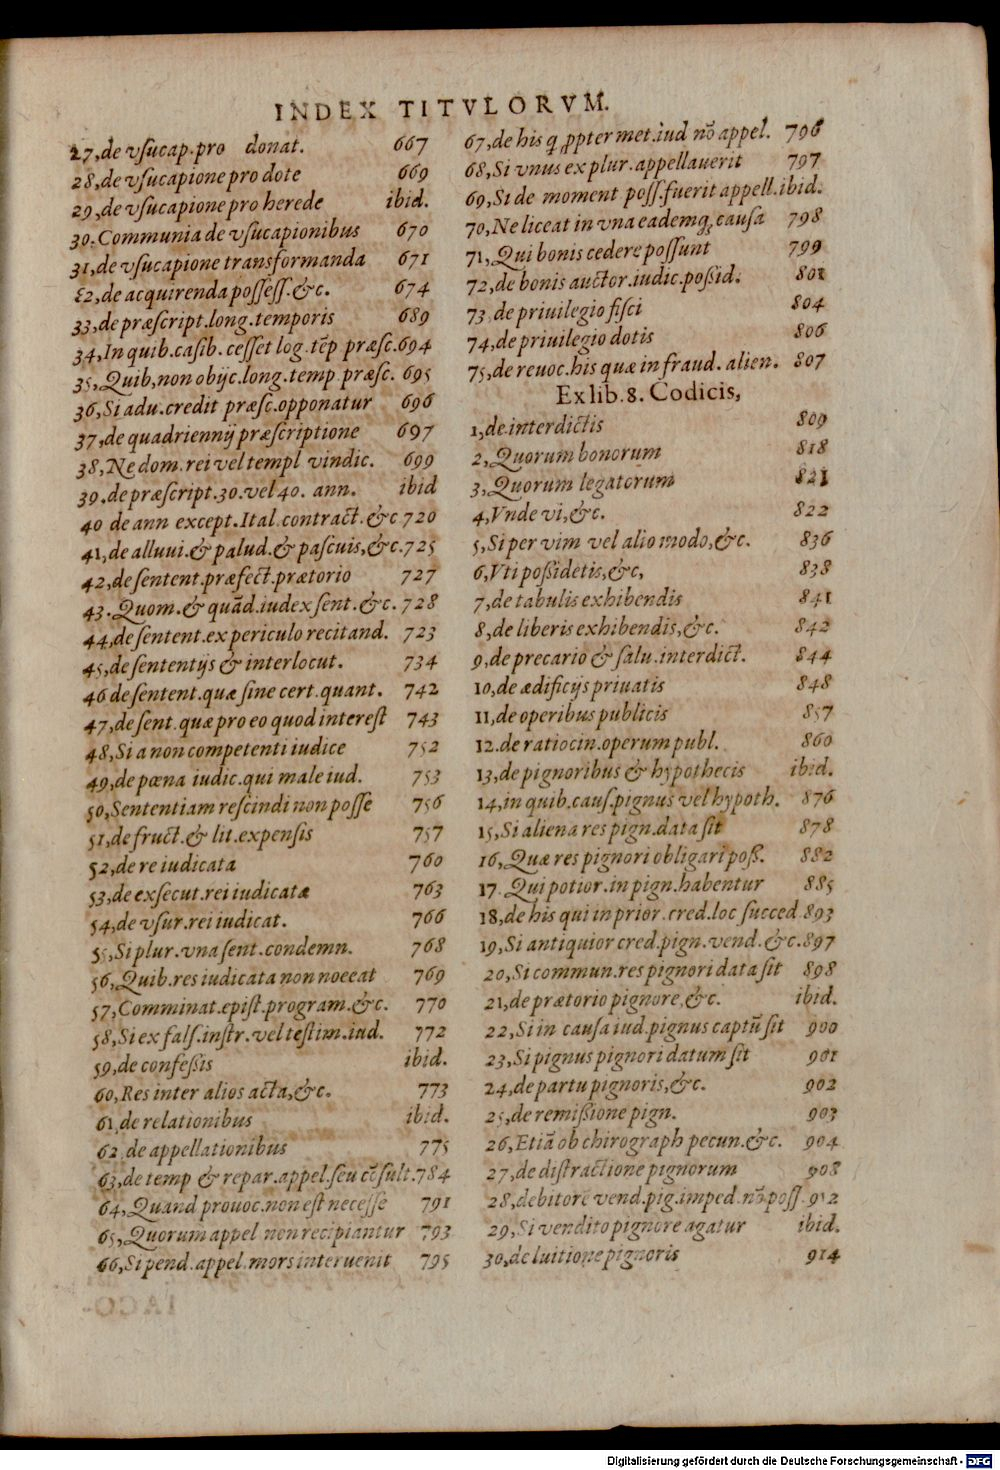 INDEX TITVLORVM.
27,de vſucap.pro donat. 667
28,de vſucapione pro dote 669
29,de vſucapione pro herede ibid.
30.Communia de vſucapionibus 670
31,de vſucapione transformanda 671
32,de acquirenda poſſeſſ.&c. 674
33,de præſcript.long.temporis 689
34,In quib.caſib.ceſſet log.tēp præſc.694
35,Quib,non obijc.long.temp.præſc. 695
36,Si adu.credit præſc.opponatur 696
37,de quadriennij præſcriptione 697
38,Ne dom.rei vel templ vindic. 699
39.de præſcript.30.vel 40. ann. ibid
40 de ann except.Ital.contract.&c 720
41,de alluui.& palud.& paſcuis,&c.725
42,de ſentent.præfect.prætorio 727
43.Quom.& quād.iudex ſent.&c. 728
44,de ſentent.ex periculo recitand. 723
45,de ſententijs & interlocut. 734
46 de ſentent.quæ ſine cert.quant. 742
47,de ſent.quæ pro eo quod intereſt 743
48,Si a non competenti iudice 752
49,de pœna iudic.qui male iud. 753
50,Sententiam reſcindi non poſſe 756
51,de fruct.& lit.expenſis 757
52,de re iudicata 760
53,de exſecut.rei iudicatæ 763
54,de vſur.rei iudicat. 766
55,Si plur.vna ſent.condemn. 768
56,Quib.res iudicata non noceat 769
57,Comminat.epiſt.program.&c. 770
58,Si ex falſ.inſtr.vel teſtim.iud. 772
59,de confeßis ibid.
60,Res inter alios acta,&c. 773
61,de relationibus ibid.
62,de appellationibus 775
63,de temp & repar.appel.ſeu cōſult.784
64,Quand prouoc.non eſt neceſſe 791
65,Quorum appel non recipiantur 793
66,Si pend.appel.mors interuenit 795
67,de his q ꝓpter met.iud nō appel. 796
68,Si vnus ex plur.appellauerit 797
69,Si de moment poſſ.fuerit appell.ibid.
70,Ne liceat in vna eademq; cauſa 798
71,Qui bonis cedere poſſunt 799
72,de bonis auctor.iudic.poßid. 801
73 de priuilegio fiſci 804
74,de priuilegio dotis 806
75,de reuoc.his quæ in fraud. alien. 807
Ex lib.8. Codicis,
1,de interdictis 809
2,Quorum bonorum 818
3,Quorum legatorum 821
4,Vnde vi,&c. 822
5,Si per vim vel alio modo,&c. 836
6,Vti poßidetis,&c, 838
7,de tabulis exhibendis 841
8,de liberis exhibendis,&c. 842
9,de precario & ſalu.interdict. 844
10,de ædificijs priuatis 848
11,de operibus publicis 857
12.de ratiocin.operum publ. 860
13,de pignoribus & hypothecis ibid.
14,in quib.cauſ.pignus vel hypoth. 876
15,Si aliena res pign.data ſit 878
16,Quæ res pignori obligari poß. 882
17.Qui potior.in pign.habentur 885
18,de his qui in prior.cred.loc ſucced 893
19,Si antiquior cred.pign.vend.&c.897
20,Si commun.res pignori data ſit 898
21,de prætorio pignore,&c. ibid.
22,Si in cauſa iud.pignus captū ſit 900
23,Si pignus pignori datum ſit 901
24,de partu pignoris,&c. 902
25,de remißione pign. 903
26,Etiā ob chirograph pecun.&c. 904
27,de diſtractione pignorum 908
28,debitorē vend.pig.imped.nō poſſ.912
29,Si vendito pignore agatur ibid.
30,de luitione pignoris 914
Digitalisierung gefördert durch die Deutsche Forschungsgemeinschaft - DFG